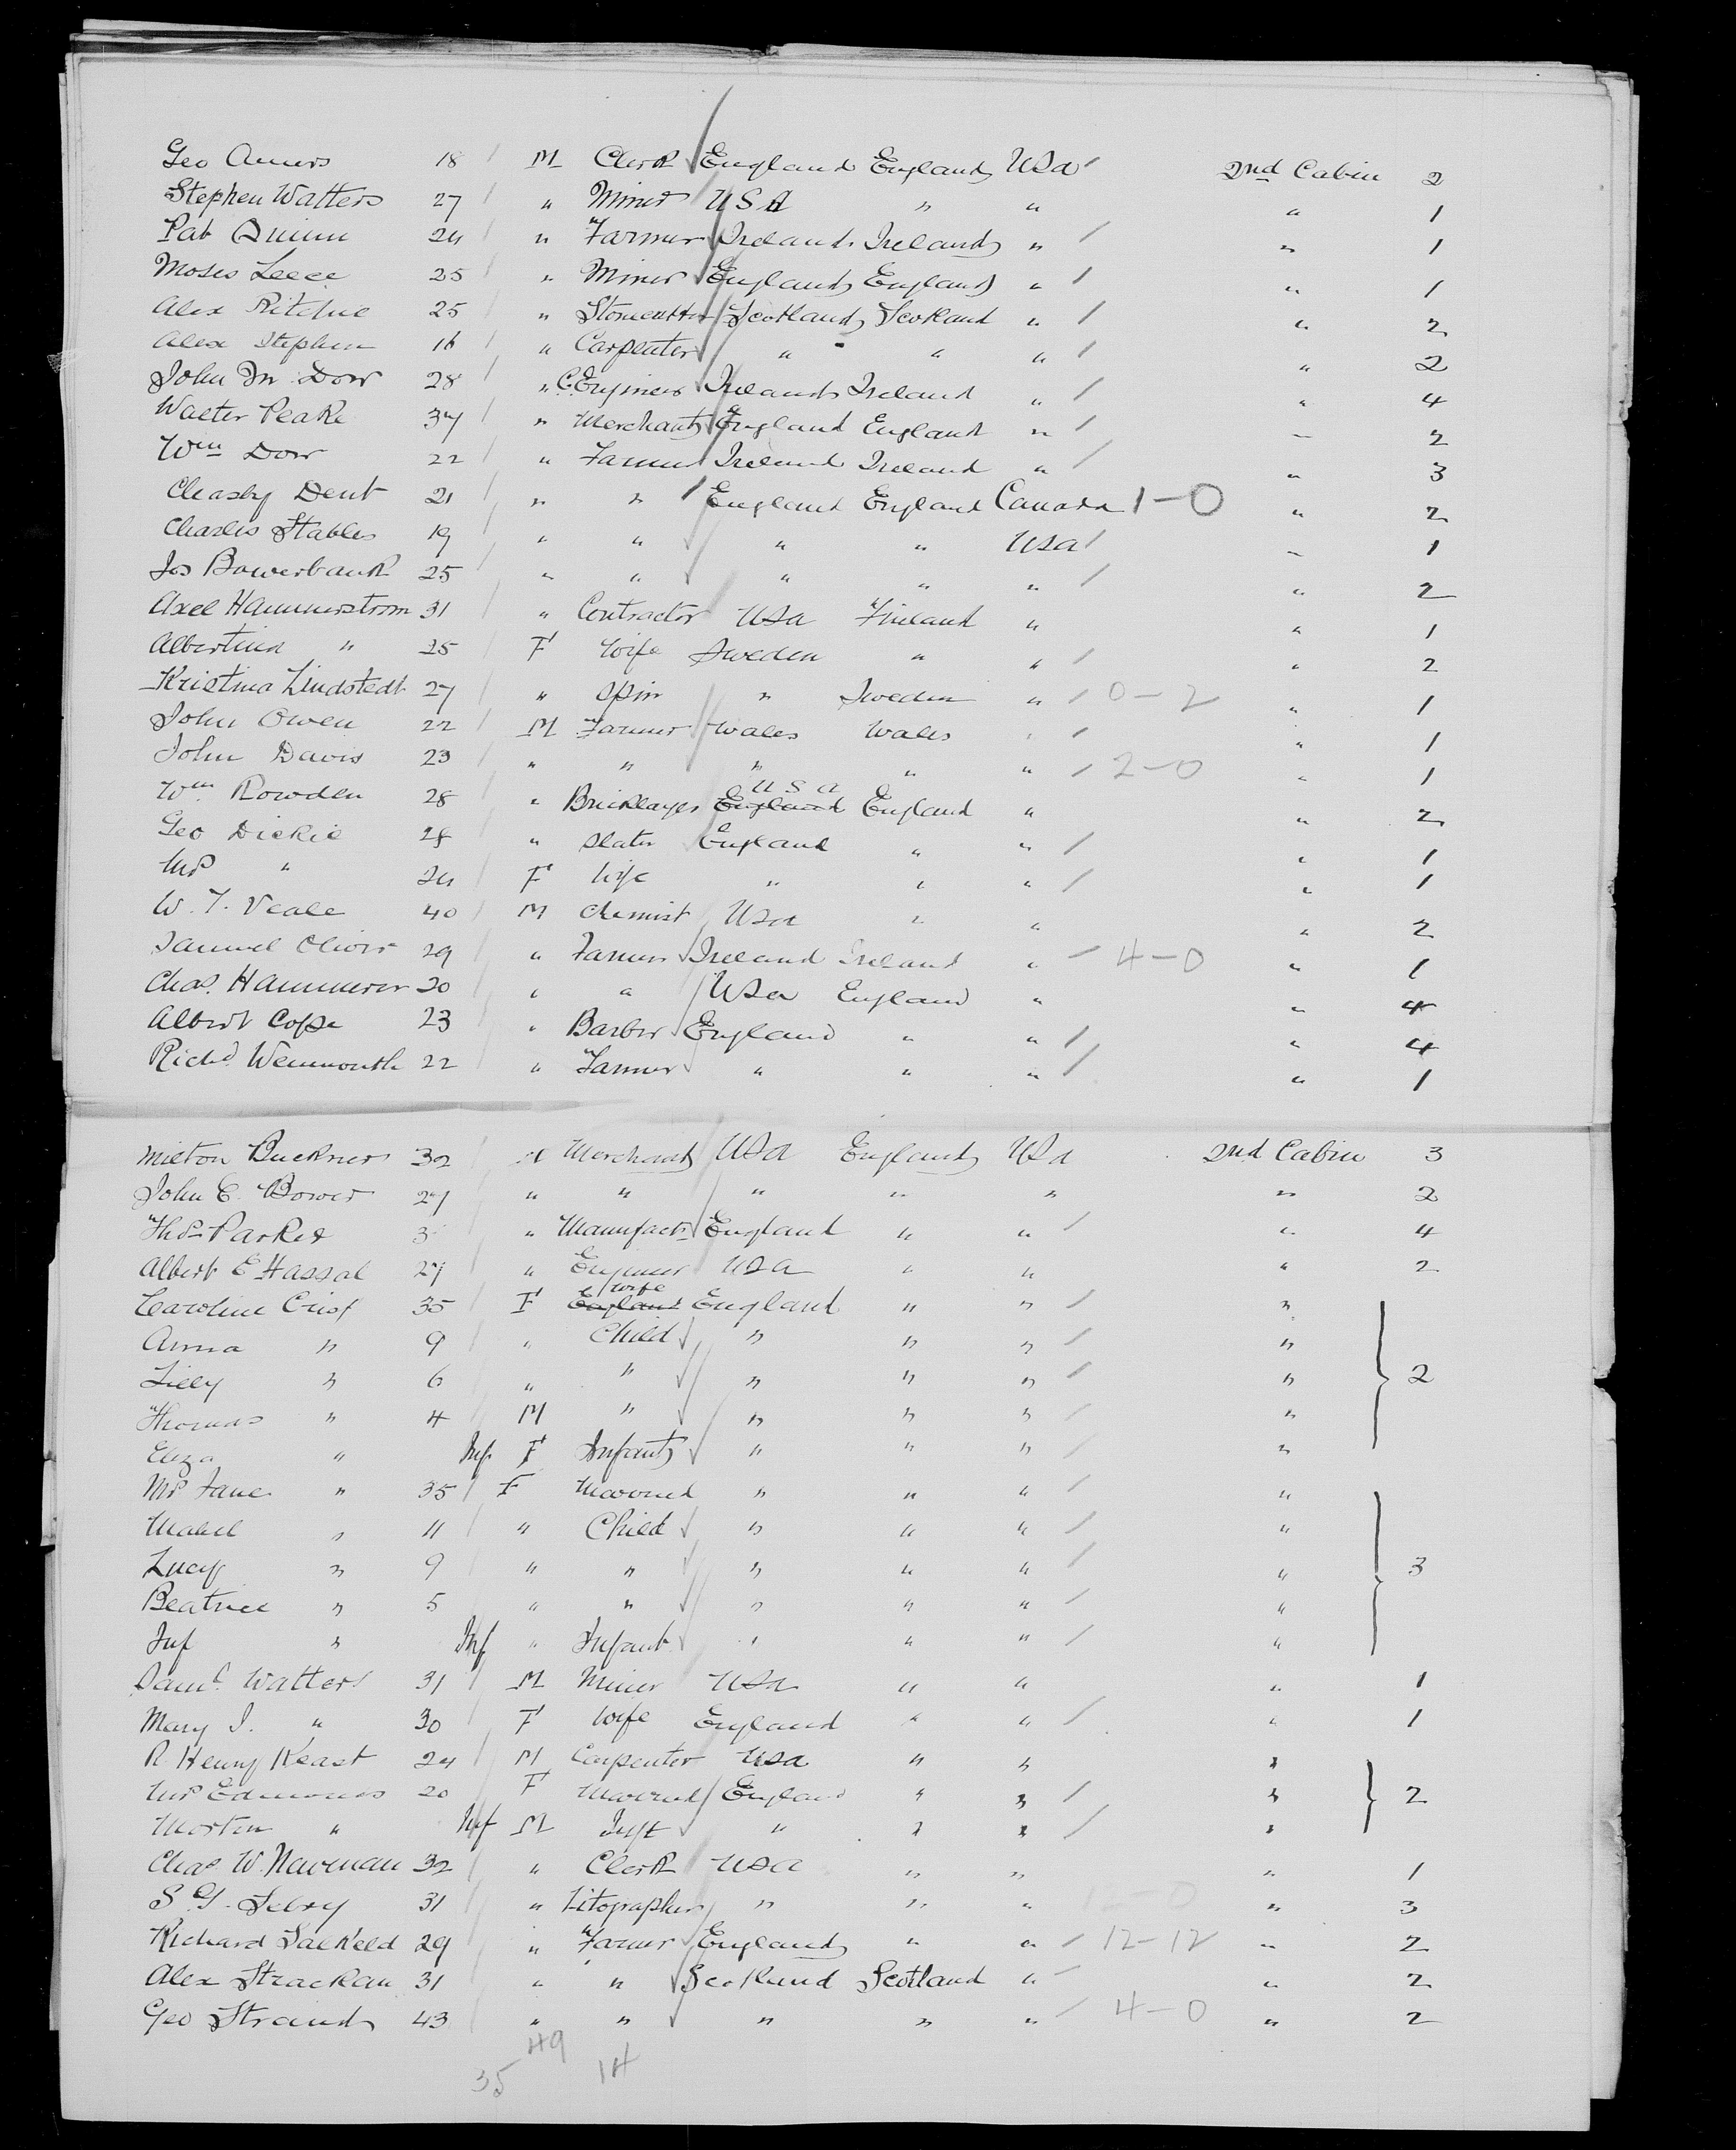 Geo Amers 18 M Clerk England England USA 2nd Cabin 2
Stephen Watters 27 " Miner USA " " " 1
Pat Quinn 24 " Farmer Ireland Ireland " " 1
Moses Leece 25 " Miner England England " " 1
Alex Ritchie 25 " Stonecutter Scotland Scotland " " 2
Alex Stephen 16 " Carpenter " " " " 2
John M Dow 28 " C. Engineer Ireland Ireland " " 4
Walter Peake 37 " Merchant England England " " 2
Wm Dow 22 " Farmer Ireland Ireland " " 3
Cleasby Dent 21 " " England England Canada 1-0 " 2
Charles Stables 19 " " " " USA " 1
Jos Bowerbank 25 " " " " " " 2
Axel Hammerstrom 31 " Contractor USA Finland " " 1
Albertina " 25 F Wife Sweden " " " 2
Kristina Lindstedt 27 " Spin " Sweden " 0-2 " 1
John Owen 22 M Farmer Wales Wales " " 1
John Davis 23 " " " " " 2-0 " 1
Wm Rowden 28 " Bricklayer England USA England " " 2
Geo Dickie 28 " Slater England " " " 1
Mrs " 24 F Wife " " " " 1
W. T. Veale 40 M Chemist USA " " " 2
Samuel Oliver 29 " Farmer Ireland Ireland " 4-0 " 1
Chas. Hammerer 20 " " USA England " " 4
Albert Cope 23 " Barber England " " " 4
Richd Wenmouth 22 " Farmer " " " " 1
Milton Buckner 32 M Merchant USA England USA 2nd Cabin 3
John E. Bower 27 " " " " " " 2
Thos Parker 3 " Manufactr England " " " 4
Albert E Hassal 27 " Engineer USA " " " 2
Caroline Crisp 35 F England Wife England " " "
Anna " 9 " Child " " " "
Lilly " 6 " " " " " " 2
Thomas " 4 M " " " " "
Eliza " Inf F Infant " " " "
Mrs Jane " 35 F Married " " " "
Mabel " 11 " Child " " " "
Lucy " 9 " " " " " " 3
Beatrice " 5 " " " " " "
Inf " Inf " Infant " " " "
Saml. Watters 31 M Miner USA " " " 1
Mary J. " 30 F Wife England " " " 1
R Henry Keast 24 M Carpenter USA " " "
Mrs Edmonds 20 F Married England " " " 2
Morten " Inf M Inft " " " "
Chas. W. Newman 32 " Clerk USA " " " 1
S G. Selvy 31 " Litographer " " " " 3
Richard Salkeld 29 " Farmer England " " 12-12 " 2
Alex Strackan 31 " " Scotland Scotland " " 2
Geo Strand 43 " " " " " 4-0 " 2
49
35 14